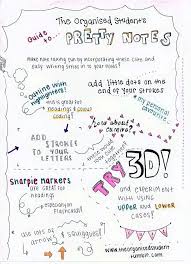 The Organised Student's
Guide to...
PRETTY NOTES
Make note taking fun by incorporating these cute and
easy writing ideas in to your notes!
Outline with
highlighters!
this is great for
headings & colour
coding!
add little dots on the
end of your strokes
my personal
favourite!
How about
cursive?
ADD
STROKES TO
YOUR LETTERS
TRY
3D!
Sharpie markers
are great for
headings
and experiment
with using
UPPER and LOWER
cases!
use lots of
arrows & squiggles!
www.theorganisedstudent
.tumblr.com